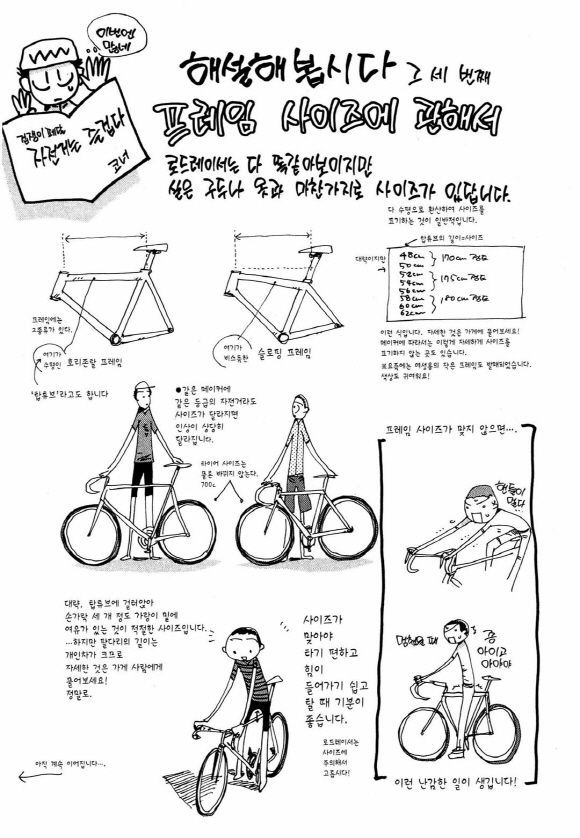 이번엔
많네
해설해 봅시다 그 세 번째
프레임 사이즈에 관해서
자전거는 즐겁다
코너
로드레이서는 다 똑같아보이지만
실은 구두나 옷과 마찬가지로 사이즈가 있답니다.
다 수평으로 환산하여 사이즈를
표기하는 것이 일반적입니다.
합튜브의 길이=사이즈
대략이지만
48cm
50cm
170cm 정도
52cm
54cm
56cm
175cm 정도
58cm
60cm
62cm
180cm 정도
프레임에는
2종류가 있다.
여기가
수평인
호리존탈 프레임
여기가
비스듬한
슬로핑 프레임
이런 식입니다. 자세한 것은 가게에 물어보세요!
메이커에 따라서는 이렇게 자세하게 사이즈를
표기하지 않는 곳도 있습니다.
또 요즘에는 여성용의 작은 프레임도 발매되었습니다.
색상도 귀여워요!
'합튜브'라고도 합니다
●같은 메이커에
같은 등급의 자전거라도
사이즈가 달라지면
인상이 상당히
달라집니다.
타이어 사이즈는
물론 바뀌지 않는다.
700c
프레임 사이즈가 맞지 않으면….
핸들이
멀다
대략, 합튜브에 걸터앉아
손가락 세 개 정도 가랑이 밑에
여유가 있는 것이 적절한 사이즈입니다.
…하지만 팔다리의 길이는
개인차가 크므로
자세한 것은 가게 사람에게
물어보세요!
정말로.
사이즈가
맞아야
타기 편하고
힘이
들어가기 쉽고
탈 때 기분이
좋습니다.
로드레이서는
사이즈에
주의해서
고릅시다!
멈췄을 때
쿵
아이고
아야야
이런 난감한 일이 생깁니다!
아직 계속 이어집니다….